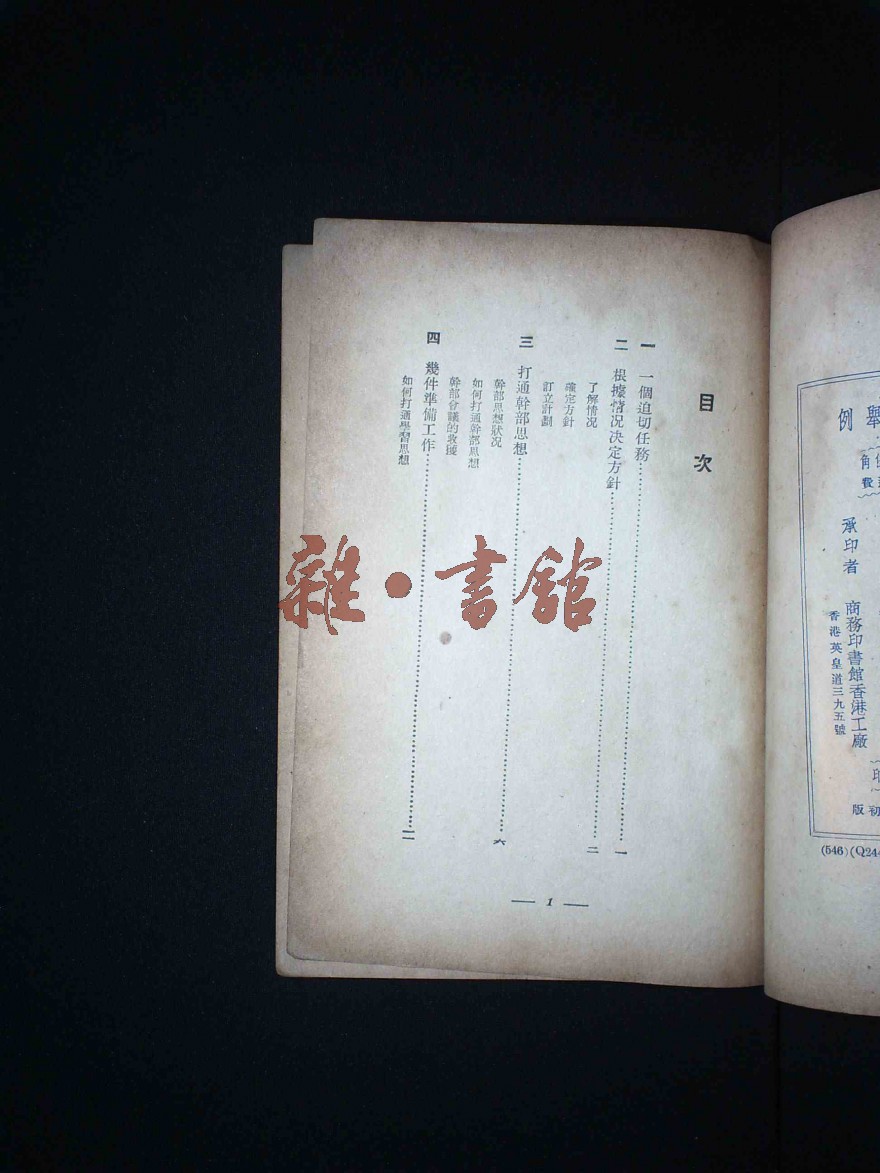 舉例
承印者 商務印書館香港工廠
香港英皇道三九五號
初版
(546)(Q244
目次
一 一個迫切任務……一
二 根據情況決定方針……二
了解情況
確定方針
訂立計劃
三 打通幹部思想……六
幹部思想狀況
如何打通幹部思想
幹部會議的收獲
四 幾件準備工作……
如何打通學習思想
— 1 —
雜·書館